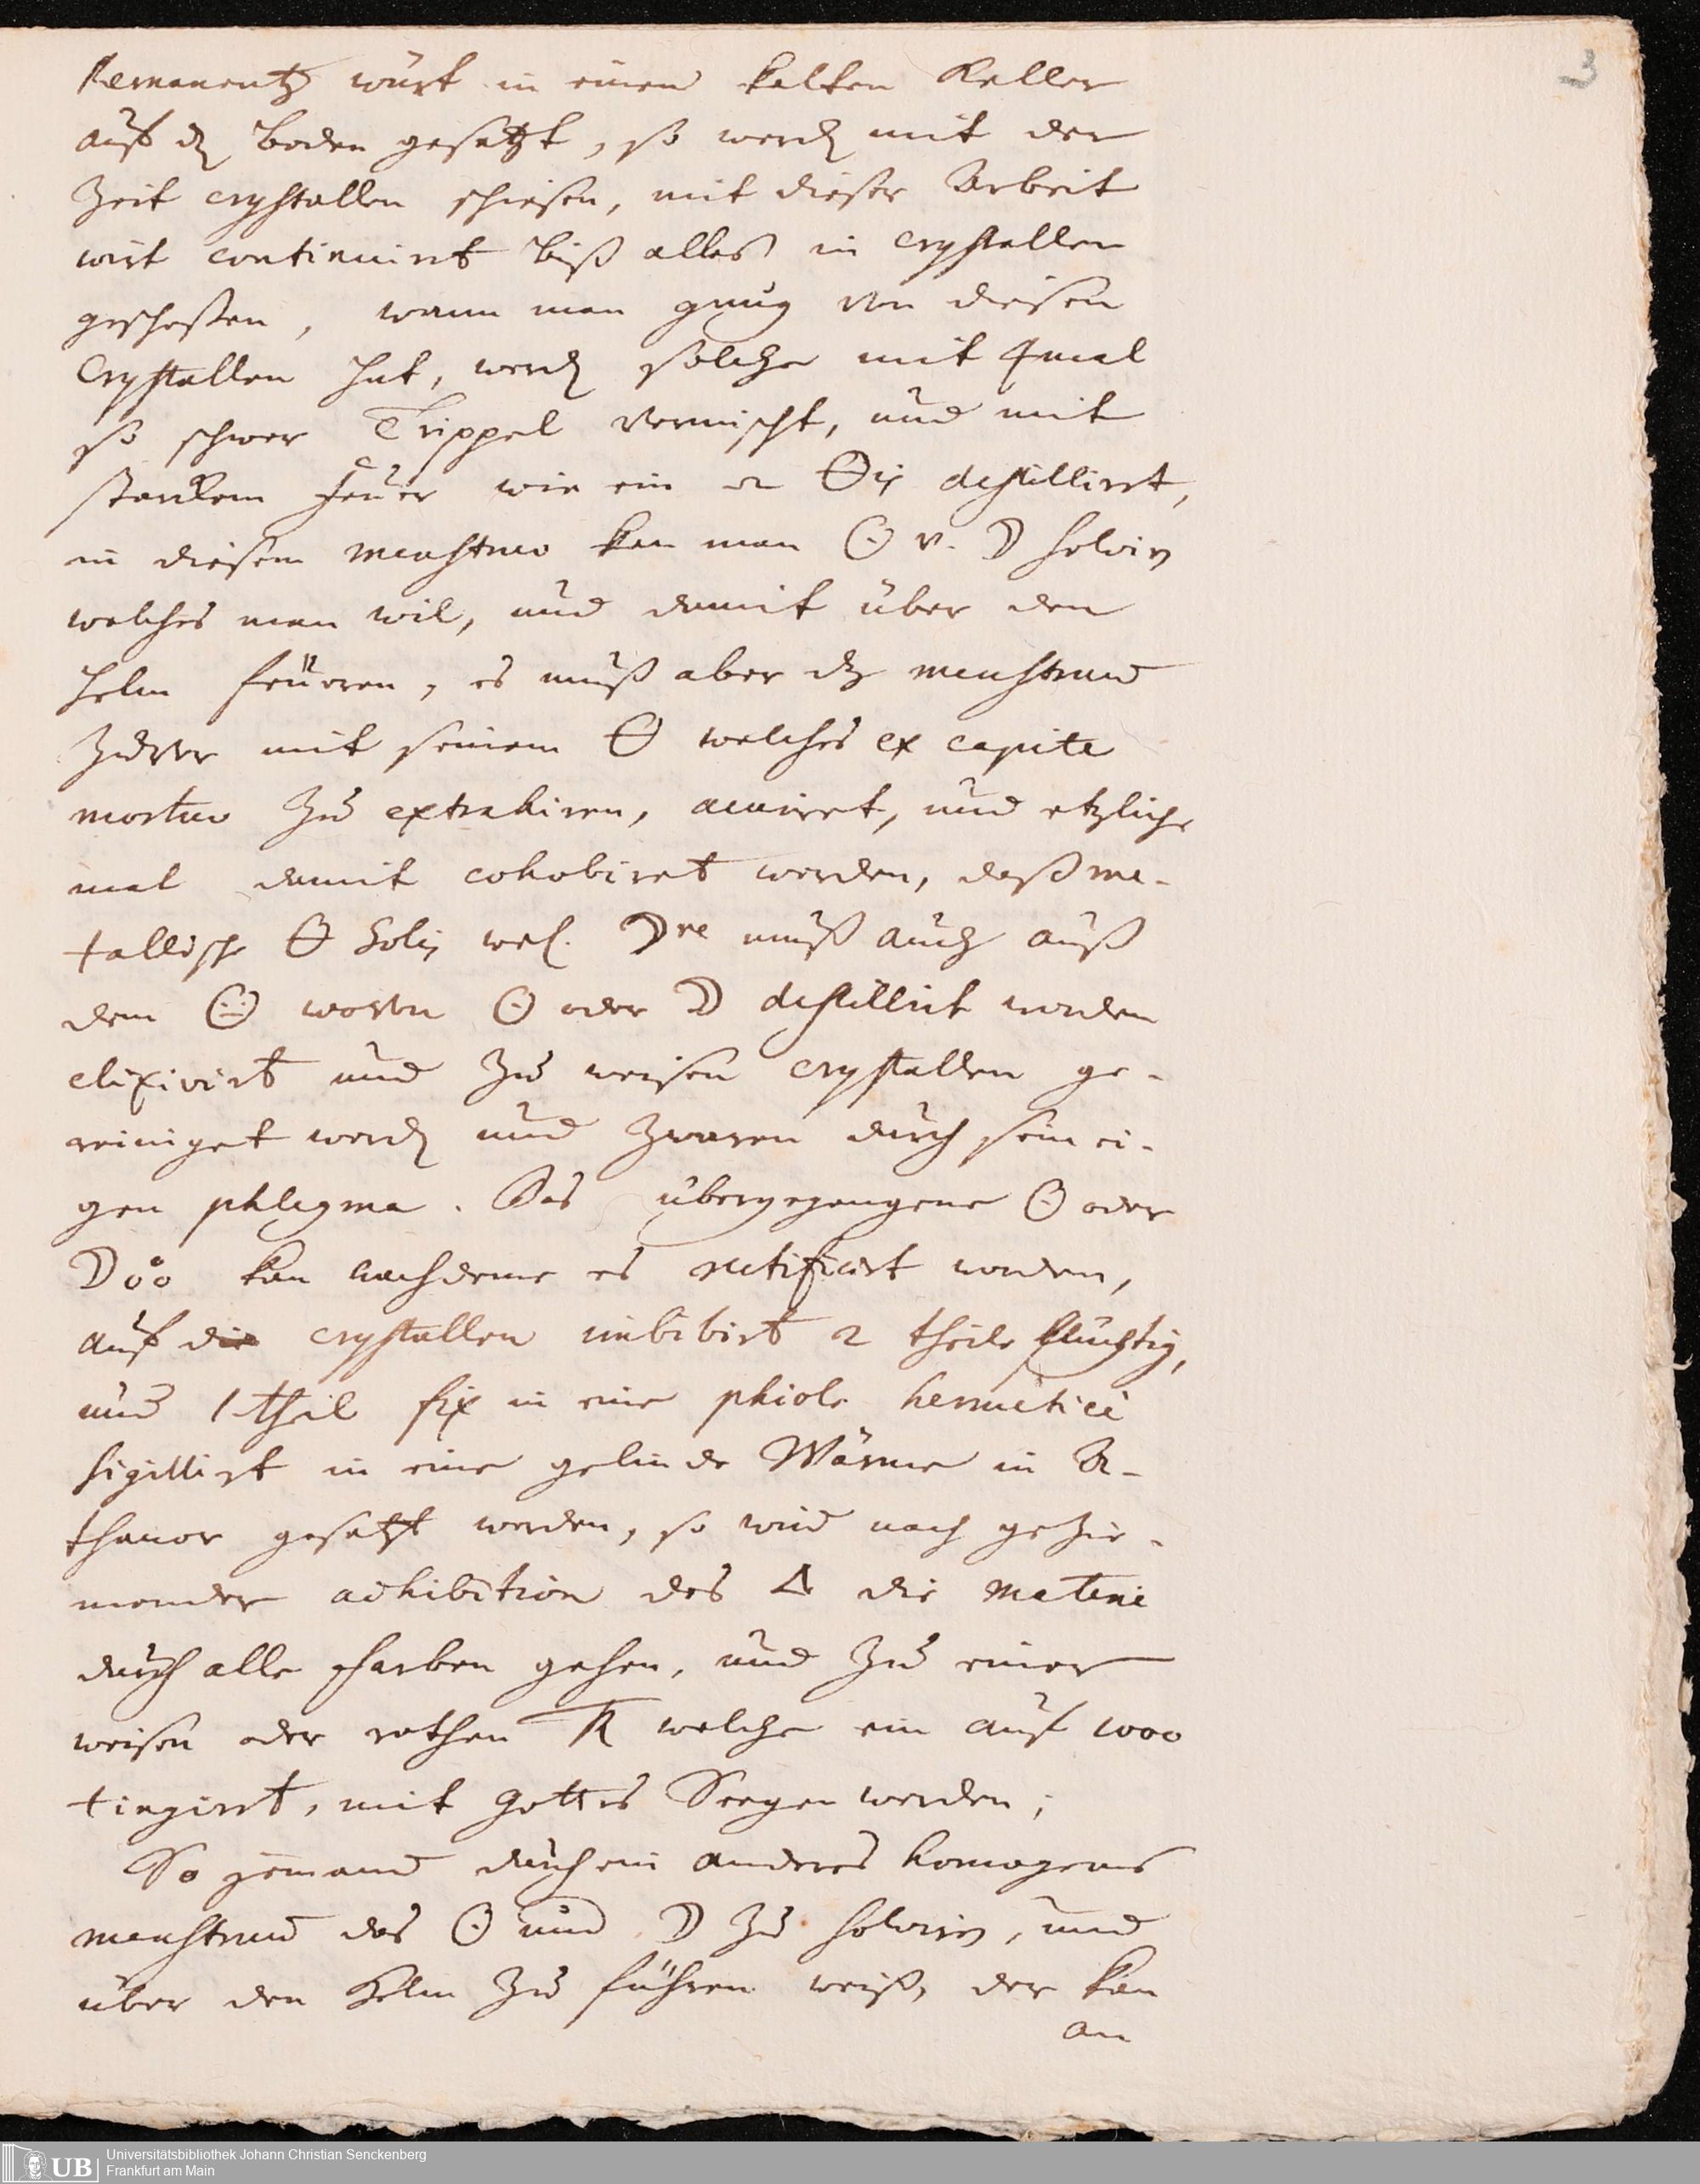 3
Remanentz würt in einen kalten Keller
auf dz Boden gesetzt, so werdn mit der
Zeit crystallen schiesen, mit dieser Arbeit
wirt continuirt biß alles in crystallen
geschossen, wann man gnug von diesen
Crystallen hat, werdn solche mit 4 mal
so schwer Trippel vermischt, und mit
starckem feuer wie ein 🜔is destillirt,
in diesem menstruo kan man ☉ v. ☽ solvirn
welches man wil, und damit über den
helm feürren, es muß aber dz menstruum
zuvor mit seinem 🜔 welches ex capite
mortuo zu extrahiren, acuiret, und etzliche
mal damit cohobiret werden, daß me-
tallische 🜔 Solis vel ☽re muß auch auß
dem worvon ☉ oder ☽ destillirt worden
elixivirt und zu weisen crystallen ge-
reiniget werdn und zwaren durch sein ei-
gen phlegma. Das übergegangene ☉ oder
☽ kan nachdeme es rectificirt worden,
auf die crystallen imbibirt 2 theile flüchtig,
und 1 theil fix in eine phiole hermeticè
sigillirt in eine gelinde Wärme in A-
thanor gesetzt werden, so wird nach gezie-
mender adhibition des 🜂 die materie
durch alle farben gehen, und zu einer
weisen oder rothen welche ein auf 1000
tingirt, mit Gottes Seegen werden;
So jemand durch ein anderes homogenes
menstruum das ☉ und ☽ zu solvirn, und
über den Helm zu führen weiß, der kan
an
UB
Universitätsbibliothek Johann Christian Senckenberg
Frankfurt am Main